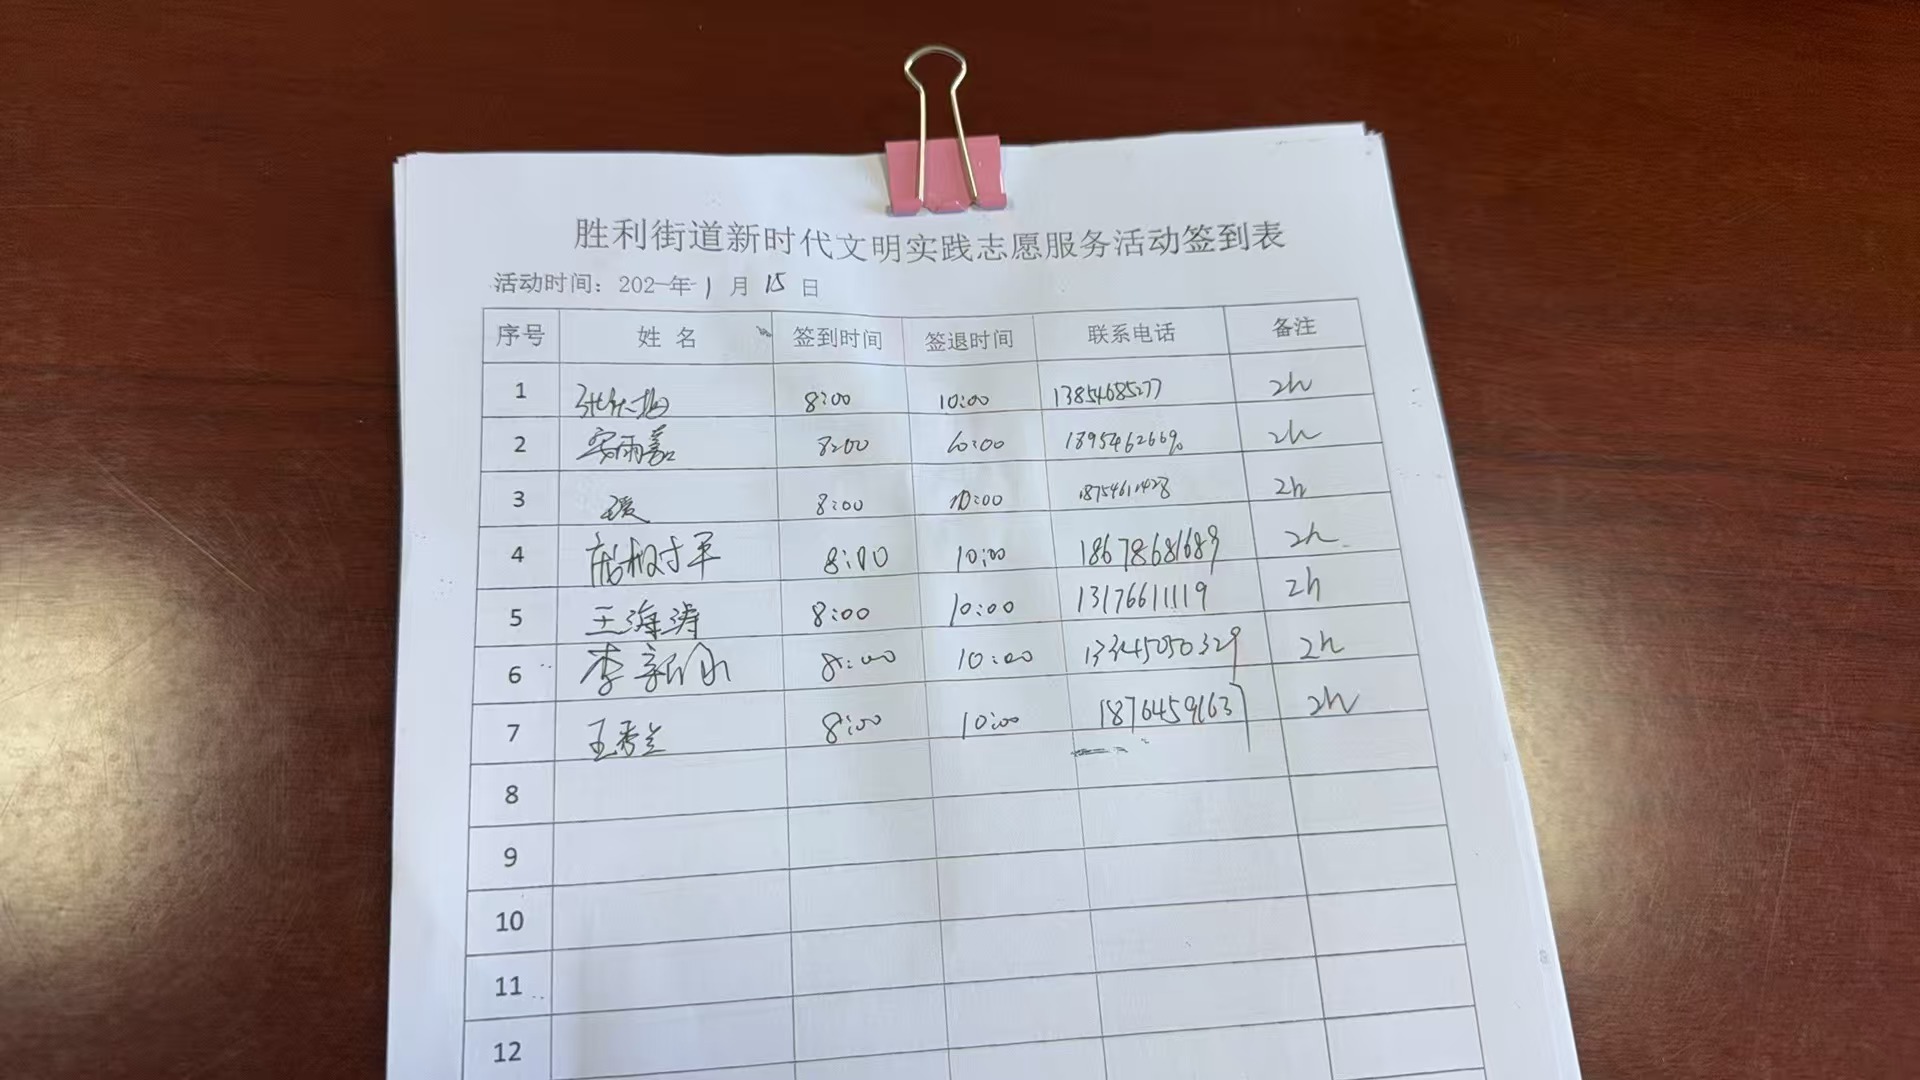 胜利街道新时代文明实践志愿服务活动签到表
活动时间：202 年 1 月 15 日
序号 姓 名 签到时间 签退时间 联系电话 备注
1 8:00 10:00 13854685277 2h
2 安雨嘉 8:00 10:00 2h
3 8:00 10:00 18754611428 2h
4 8:00 10:00 18678681689 2h
5 王海涛 8:00 10:00 13176611119 2h
6 李 8:00 10:00 13345050329 2h
7 王秀兰 8:00 10:00 18764591637 2h
8
9
10
11
12